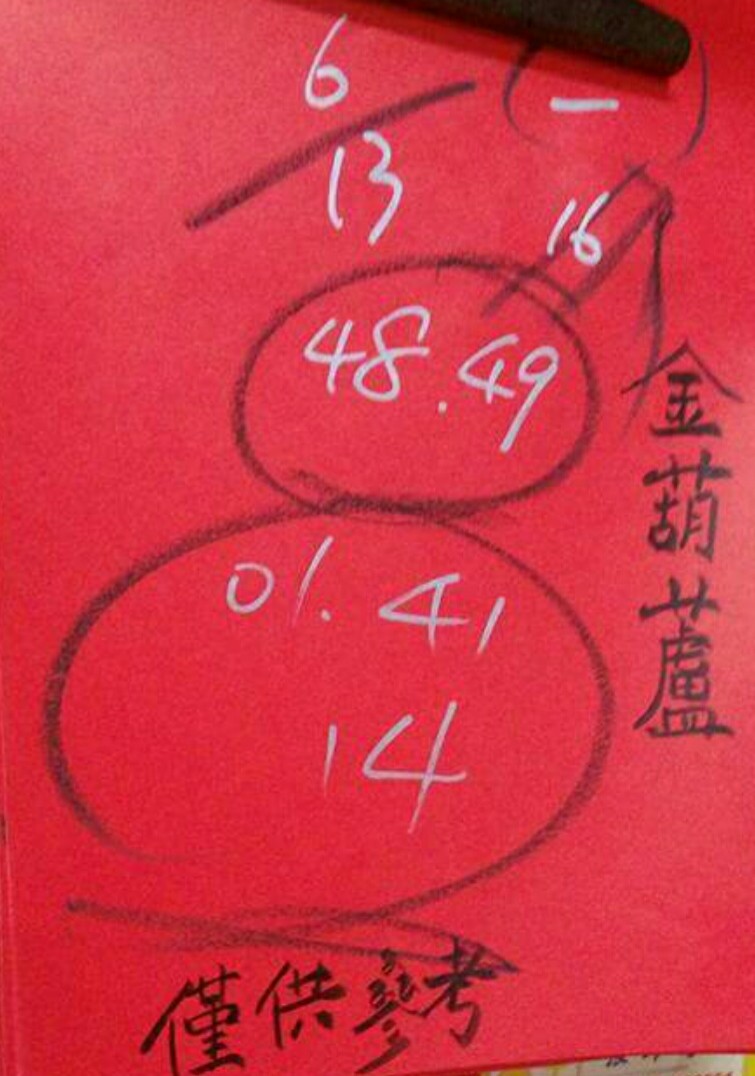 6
(一)
13
16
48.49
01.41
14
金葫蘆
僅供參考